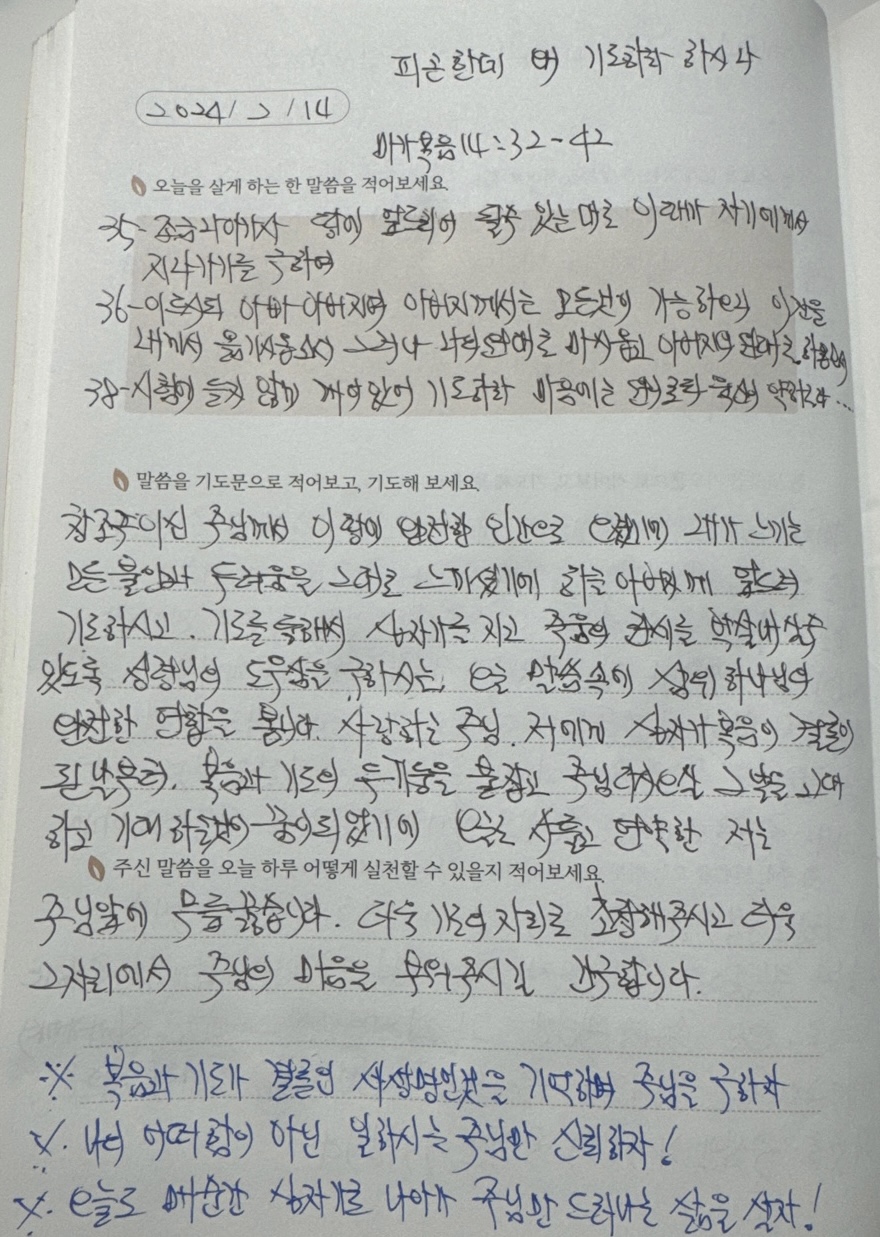 피곤한데 왜 기도하라 하시나
2024/2/14
마가복음14:32-42
오늘을 살게 하는 한 말씀을 적어보세요.
35-조금나아가사 땅에 엎드리어 될수 있는대로 이때가 자기에게서
지나가기를 구하여
36-이르시되 아빠 아버지여 아버지께서는 모든것이 가능하오니 이잔을
내게서 옮기시옵소서 그러나 나의원대로 마시옵고 아버지의 원대로 하옵소서
38-시험에 들지 않게 깨어있어 기도하라 마음에는 원이로되 육신이 약하도다...
말씀을 기도문으로 적어보고, 기도해 보세요.
창조주이신 주님께서 이땅에 완전한 인간으로 오셨기에 내가 느끼는
모든 불안과 두려움을 그대로 느끼셨기에 하늘 아버지께 엎드려
기도하시고. 기도를 통해서 십자가를 지고 죽음의 권세를 박살내실수
있도록 성령님의 도우심을 구하시는, 오늘 말씀속에 삼위 하나님의
완전한 연합을 봅니다. 사랑하는 주님. 저에게 십자가복음이 결론이
된 날부터. 복음과 기도의 두기둥을 붙잡고 주님 다시오실 그날을 고대
하고 기대하는것이 꿈이 되었기에 오늘도 사륻고 연약한 저는
주신 말씀을 오늘 하루 어떻게 실천할 수 있을지 적어보세요.
주님앞에 무릎꿇습니다. 더욱 기도의 자리로 초청해주시고 더욱
그자리에서 주님의 마음을 부어주시길 간구합니다.
※ 복음과 기도가 결론인 새생명인것을 기억하며 주님을 구하자
※. 나의 어떠함이 아닌 일하시는 주님만 신뢰하자!
※. 오늘도 매순간 십자가로 나아가 주님만 드러나는 삶을 살자!